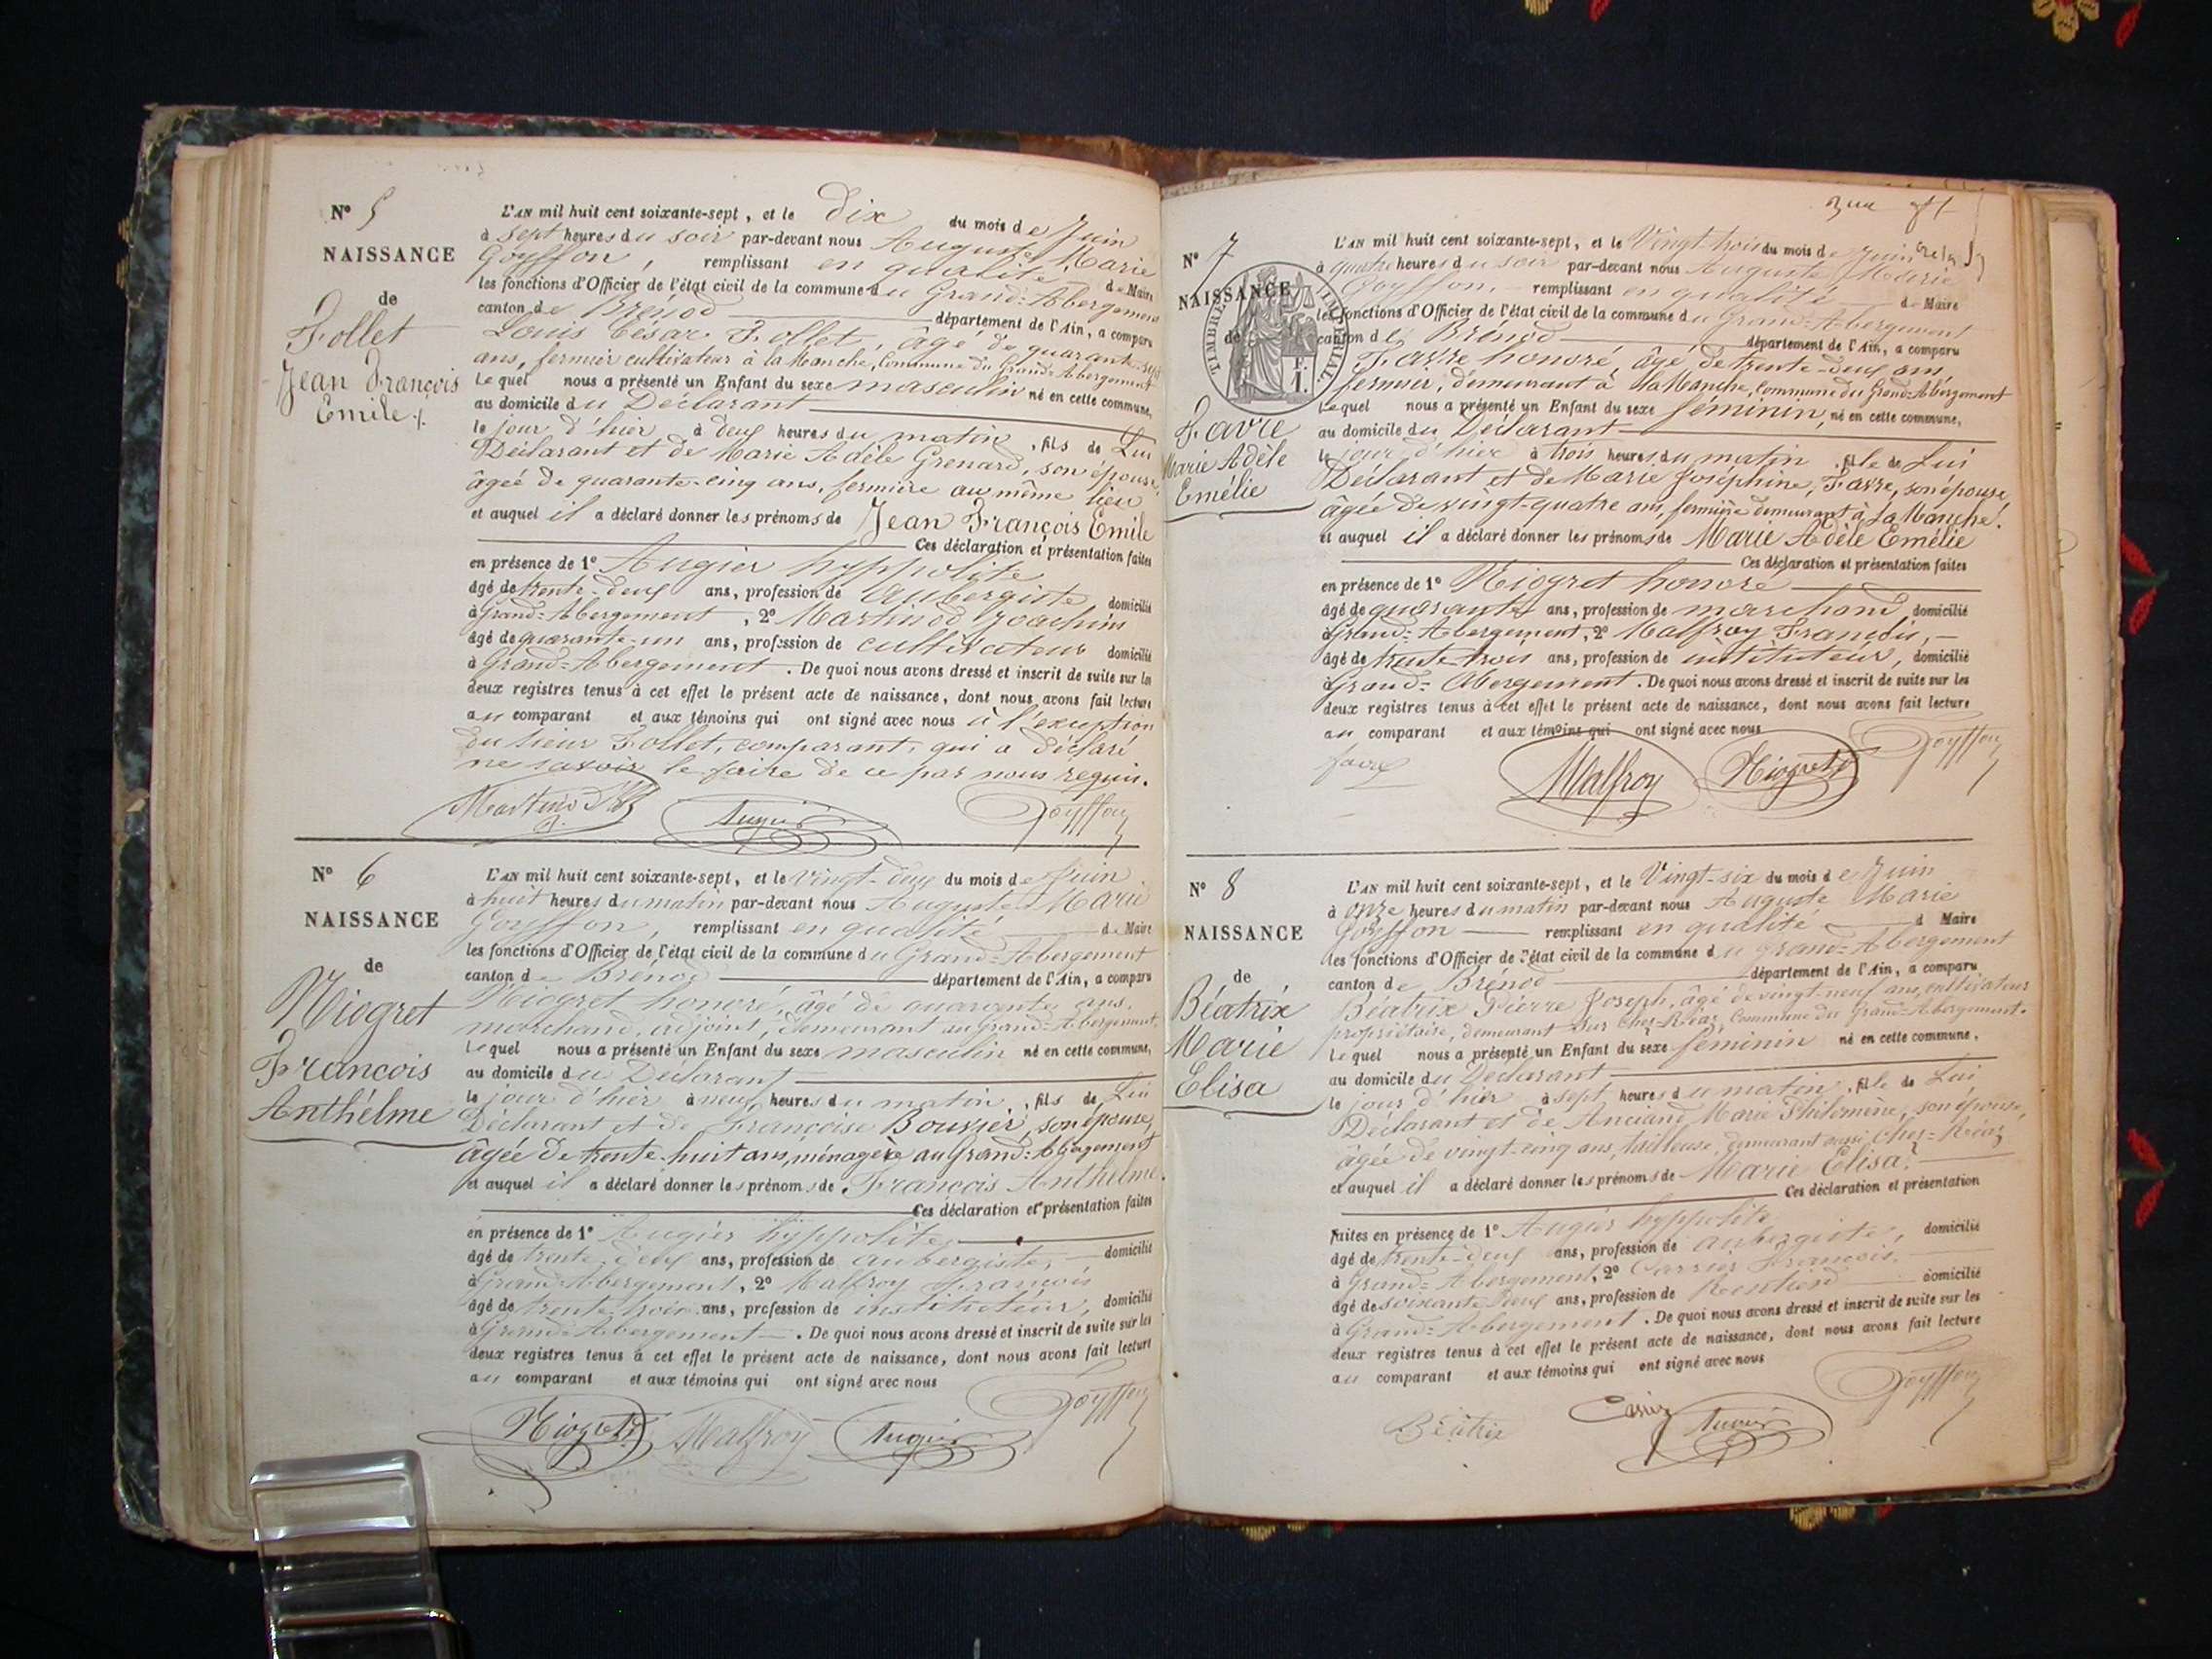 N° 5
NAISSANCE
de
Follet
Jean François
Emile
L'AN mil huit cent soixante-sept, et le dix du mois de Juin
à sept heures du soir par-devant nous Auguste Marie
Goyffon, remplissant en qualité de Maire
les fonctions d'Officier de l'état civil de la commune du Grand-Abergement
canton de Brénod département de l'Ain, a comparu
Louis César Follet, âgé de quarante-sept
ans, fermier cultivateur à la Manche, Commune du Grand-Abergement
Lequel nous a présenté un Enfant du sexe masculin né en cette commune,
au domicile du Déclarant
le jour d'hier à deux heures du matin, fils de Lui
Déclarant et de Marie Adèle Grenard, son épouse,
âgée de quarante-cinq ans, fermière au même lieu
et auquel il a déclaré donner les prénoms de Jean François Emile
Ces déclaration et présentation faites
en présence de 1° Augier hyppolite
âgé de trente-deux ans, profession de aubergiste domicilié
à Grand-Abergement, 2° Martinod Joachim
âgé de quarante-un ans, profession de cultivateur domicilié
à Grand-Abergement. De quoi nous avons dressé et inscrit de suite sur les
deux registres tenus à cet effet le présent acte de naissance, dont nous avons fait lecture
au comparant et aux témoins qui ont signé avec nous à l'exception
du sieur Follet, comparant, qui a déclaré
ne savoir le faire de ce par nous requis.
Martinod Augier Goyffon
N° 6
NAISSANCE
de
Niogret
François
Anthélme
L'AN mil huit cent soixante-sept, et le Vingt-deux du mois de Juin
à huit heures du matin par-devant nous Auguste Marie
Goyffon, remplissant en qualité de Maire
les fonctions d'Officier de l'état civil de la commune du Grand-Abergement
canton de Brénod département de l'Ain, a comparu
Niogret honoré, âgé de quarante ans,
marchand, adjoint, demeurant au Grand-Abergement,
Lequel nous a présenté un Enfant du sexe masculin né en cette commune,
au domicile du Déclarant
le jour d'hier à neuf heures du matin, fils de Lui
Déclarant et de Françoise Bouvier, son épouse,
âgée de trente-huit ans, ménagère au Grand-Abergement
et auquel il a déclaré donner les prénoms de François Anthelme.
Ces déclaration et présentation faites
en présence de 1° Augier hyppolite,
âgé de trente-deux ans, profession de aubergiste, domicilié
à Grand-Abergement, 2° Malfroy François
âgé de trente-trois ans, profession de instituteur, domicilié
à Grand-Abergement. De quoi nous avons dressé et inscrit de suite sur les
deux registres tenus à cet effet le présent acte de naissance, dont nous avons fait lecture
au comparant et aux témoins qui ont signé avec nous
Niogret Malfroy Augier Goyffon
N° 7
NAISSANCE
de
TIMBRE IMPÉRIAL
Favre
Marie Adèle
Emélie
L'AN mil huit cent soixante-sept, et le Vingt-trois du mois de Juin
à quatre heures du soir par-devant nous Auguste Marie
Goyffon, remplissant en qualité de Maire
les fonctions d'Officier de l'état civil de la commune du Grand-Abergement
canton de Brénod département de l'Ain, a comparu
Favre honoré, âgé de trente-deux ans,
fermier, demeurant à la Manche, Commune du Grand-Abergement
Lequel nous a présenté un Enfant du sexe féminin, né en cette commune,
au domicile du Déclarant
le jour d'hier à trois heures du matin, fille de Lui
Déclarant et de Marie Joséphine, Favre, son épouse,
âgée de vingt-quatre ans, fermière demeurant à La Manche.
et auquel il a déclaré donner les prénoms de Marie Adèle Emélie
Ces déclaration et présentation faites
en présence de 1° Niogret honoré
âgé de quarante ans, profession de marchand domicilié
à Grand-Abergement, 2° Malfroy François,
âgé de trente-trois ans, profession de instituteur, domicilié
à Grand-Abergement. De quoi nous avons dressé et inscrit de suite sur les
deux registres tenus à cet effet le présent acte de naissance, dont nous avons fait lecture
au comparant et aux témoins qui ont signé avec nous
favre Malfroy Niogret Goyffon
N° 8
NAISSANCE
de
Béatrix
Marie
Elisa
L'AN mil huit cent soixante-sept, et le Vingt-six du mois de Juin
à onze heures du matin par-devant nous Auguste Marie
Goyffon remplissant en qualité d Maire
les fonctions d'Officier de l'état civil de la commune du Grand-Abergement
canton de Brénod département de l'Ain, a comparu
Béatrix Pierre Joseph, âgé de vingt-neuf ans, cultivateur
propriétaire, demeurant sur Chez-Réaz, Commune du Grand-Abergement.
Lequel nous a présenté un Enfant du sexe féminin né en cette commune,
au domicile du Déclarant
le jour d'hier à sept heures du matin, fille de Lui
Déclarant et de Anciand Marie Philomène, son épouse,
âgée de vingt-cinq ans, tailleuse, demeurant aussi Chez-Réaz
et auquel il a déclaré donner les prénoms de Marie Elisa.
Ces déclaration et présentation
faites en présence de 1° Augier hyppolite
âgé de trente-deux ans, profession de aubergiste, domicilié
à Grand-Abergement, 2° Carrier François.
âgé de soixante deux ans, profession de Rentier domicilié
à Grand-Abergement. De quoi nous avons dressé et inscrit de suite sur les
deux registres tenus à cet effet le présent acte de naissance, dont nous avons fait lecture
au comparant et aux témoins qui ont signé avec nous
Béatrix Carrier Augier Goyffon